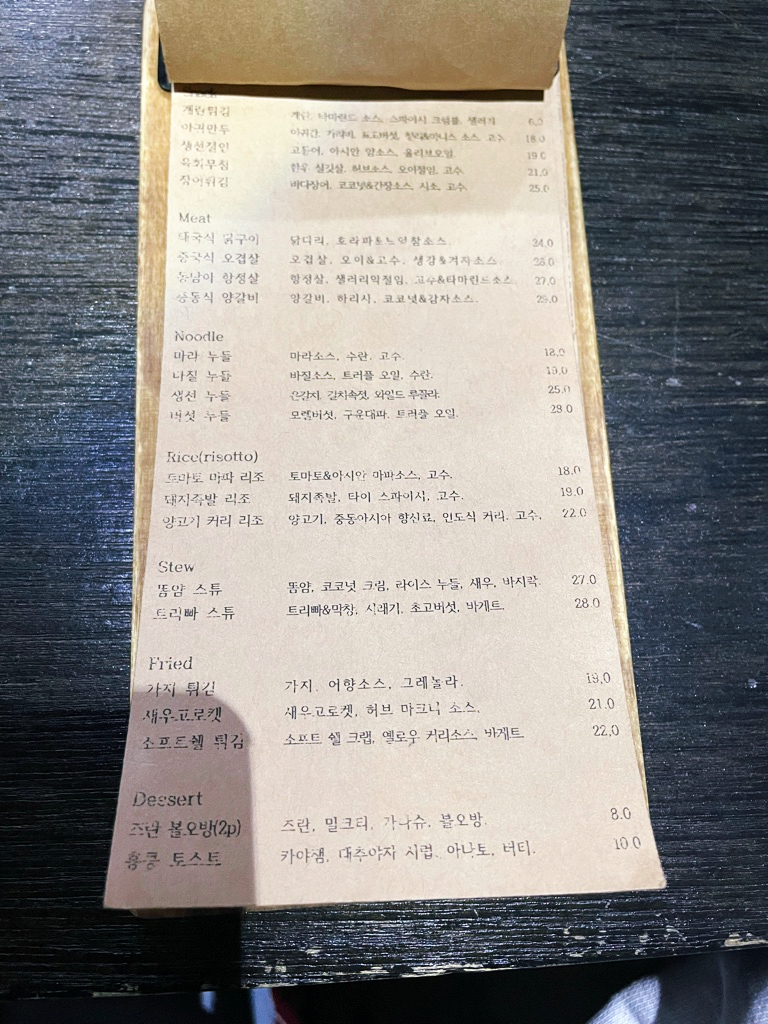 계란튀김 계란, 타마린드 소스, 스파이시 크럼블, 샐러리 6.0
아귀만두 표고버섯, 소스, 고수 18.0
생선절임 고등어, 아시안 맘소스, 올리브오일. 19.0
육회무침 한우 설깃살, 허브소스, 오이절임, 고수. 21.0
장어튀김 바다장어, 코코넛&간장소스, 시소, 고수. 25.0
Meat
태국식 닭구이 닭다리, 24.0
중국식 오겹살 오겹살, 오이&고수, 생강&겨자소스.
동남아 항정살 항정살, 샐러리악절임, 고수&타마린드소스 27.0
중동식 양갈비 양갈비, 하리사, 코코넛&감자소스.
Noodle
마라 누들 마라소스, 수란, 고수. 18.0
바질 누들 바질소스, 트러플 오일, 수란. 19.0
생선 누들 은갈치, 갈치속젓, 와일드 루꼴라. 25.0
버섯 누들 모렐버섯, 구운대파, 트러플 오일.
Rice(risotto)
토마토 마파 리조 토마토&아시안 마파소스, 고수. 18.0
돼지족발 리조 돼지족발, 타이 스파이시, 고수. 19.0
양고기 커리 리조 양고기, 중동아시아 향신료, 인도식 커리, 고수, 22.0
Stew
똠얌 스튜 똠얌, 코코넛 크림, 라이스 누들, 새우, 바지락. 27.0
트리빠 스튜 트리빠&막창, 시래기, 초고버섯, 바게트. 28.0
Fried
가지 튀김 가지, 어향소스, 그레놀라. 19.0
새우고로켓 새우고로켓, 허브 마크니 소스. 21.0
소프트쉘 튀김 소프트 쉘 크랩, 옐로우 커리소스, 바게트 22.0
Dessert
즈란 볼오방(2p) 즈란, 밀크티, 가나슈, 볼오방. 8.0
홍콩 토스트 카야잼, 대추야자 시럽, 아나토, 버터. 10.0